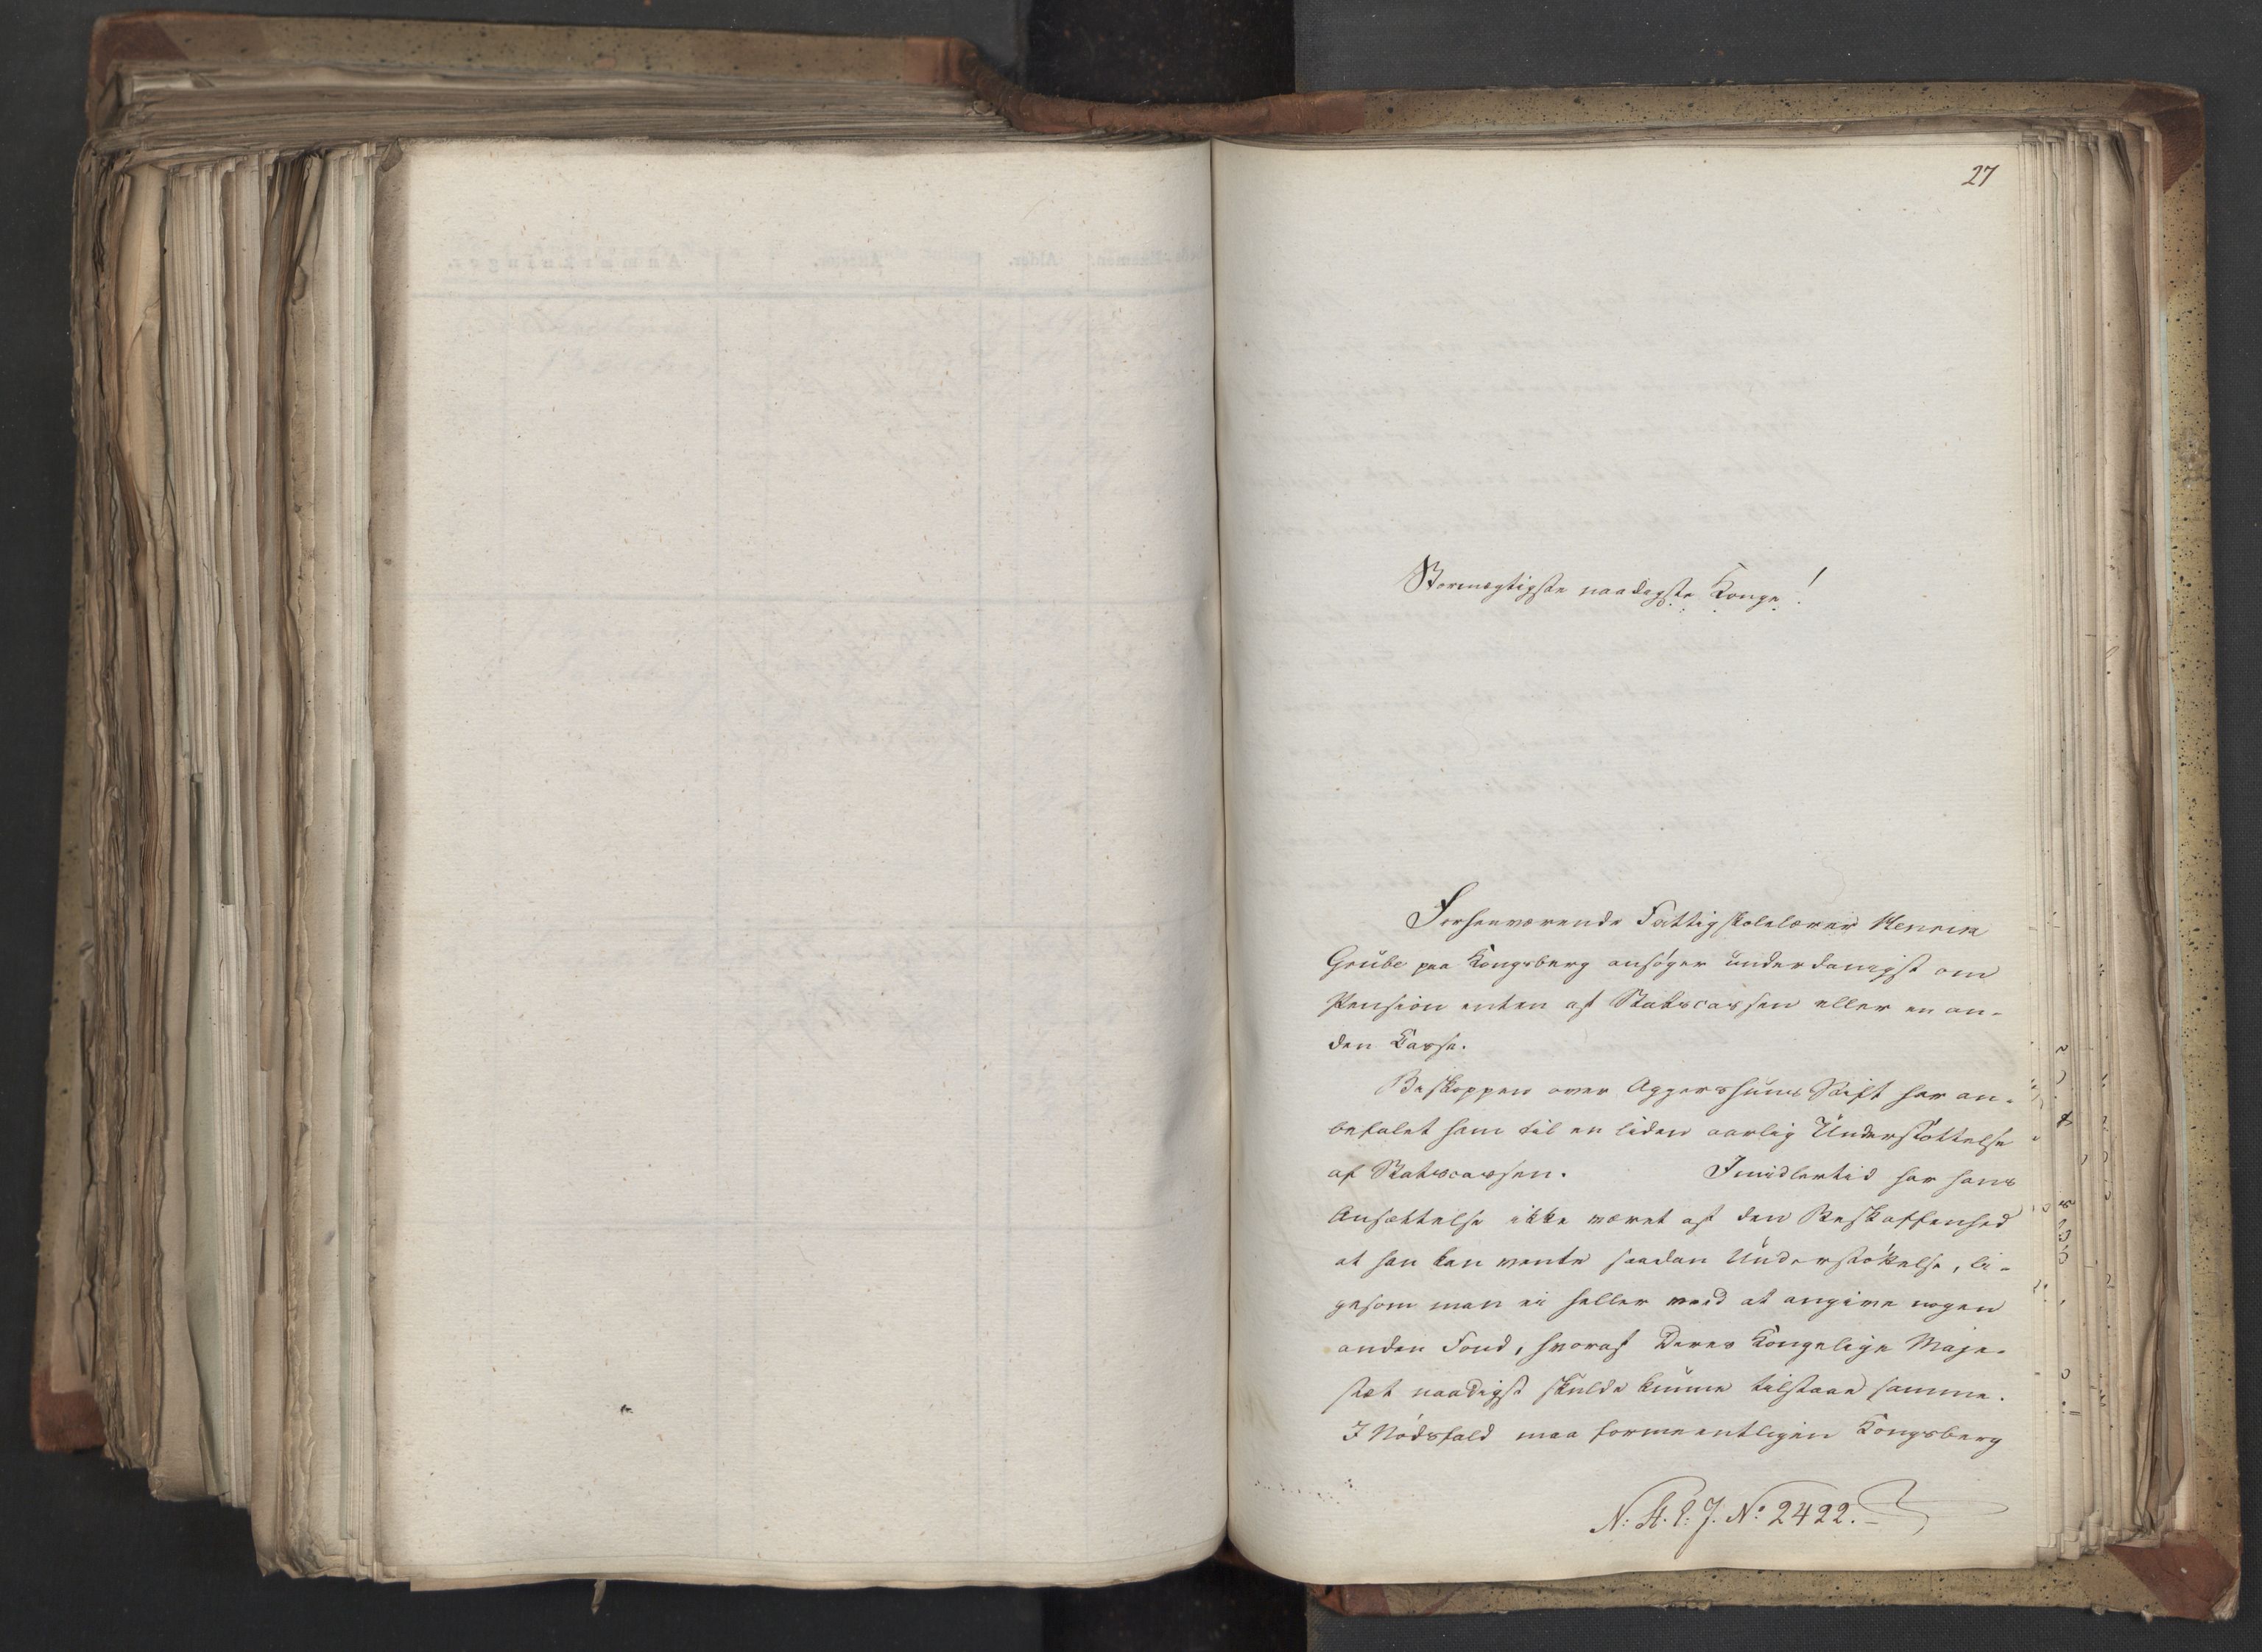 27
Stormægtigste naadigste Konge!
Forhenværende Fattigskolelærer Henrik
Grübe paa Kongsberg ansøger underdanigst om
Pension enten af Statscassen eller en an-
den Casse.
Beskoppen over Aggershuus Stift har an-
befalet ham til en liden aarlig Understøttelse
af Statscassen. Imidlertid har hans
Ansættelse ikke været af den Beskaffenhed
at han kan vente saadan Understøttelse, li-
gesom man ei heller veed at angive nogen
anden Fond, hvoraf Deres Kongelige Maje-
stæt naadigst skulde kunne tilstaae samme.
I Nødsfald maa formeentligen Kongsberg
N: A. E: J. No 2422.
Anmærkninger.
Alder.